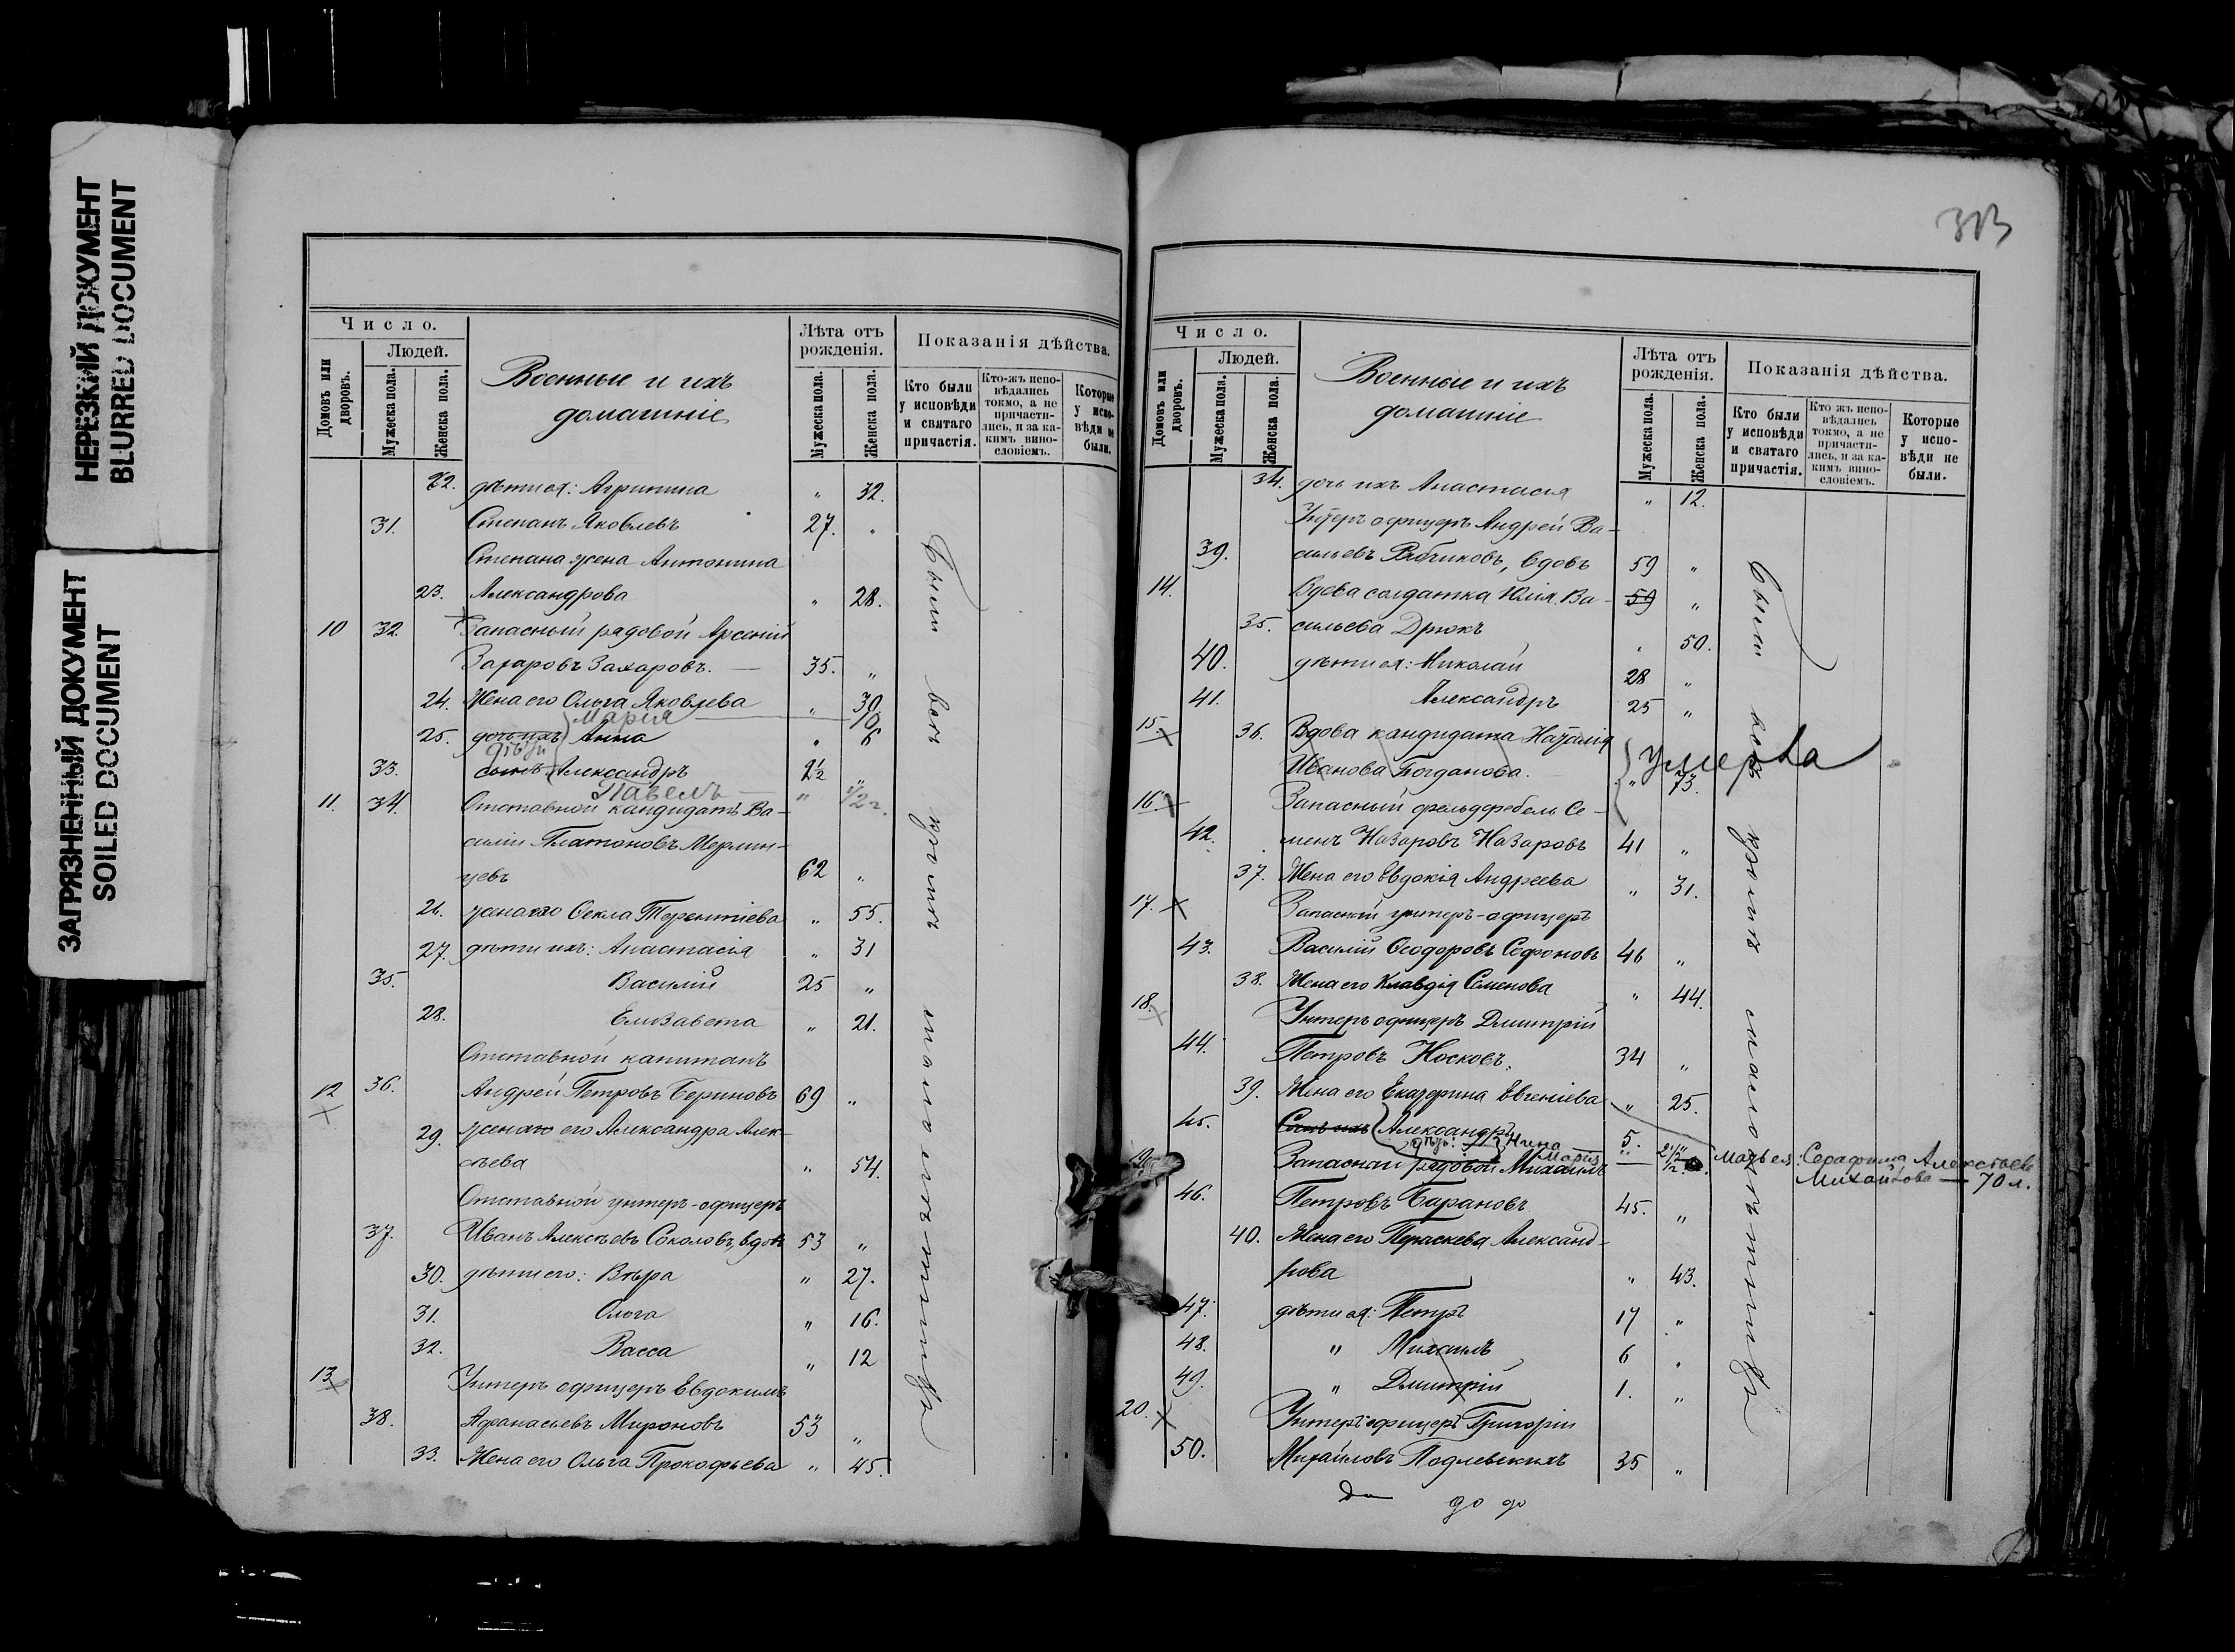 НЕРЕЗКИЙ ДОКУМЕНТ
BLURRED DOCUMENT
ЗАГРЯЗНЕННЫЙ ДОКУМЕНТ
SOILED DOCUMENT
Число.
Людей.
Домовъ или дворовъ.
Мужеска пола.
Женска пола.
Военные и ихъ
домашніе
Лѣта отъ рожденія.
Мужеска пола.
Женска пола.
Показанія дѣйства.
Кто были у исповѣди и святаго причастія.
Кто-жъ исповѣдались токмо, а не причастились, и за какимъ винословіемъ.
Которые у исповѣди не были.
22. дѣти ея: Агрипина " 32.
31. Степанъ Яковлевъ 27. "
Степана жена Антонина
23. Александрова " 28.
10 32. Запасный рядовой Арсеній
Захаровъ Захаровъ. — 35. "
24. Жена его Ольга Яковлева " 30
Марія
25. дочь ихъ Анна " 6
дѣти
33. сынъ Александръ 2½ "
Павелъ — " 1/2 г.
11. 34. Отставной кандидатъ Ва-
силій Платоновъ Мерлин-
цевъ 62 "
26. жена его Ѳекла Терентіева " 55.
27. дѣти ихъ: Анастасія " 31
35. Василій 25 "
28. Елизавета " 21.
Отставной капитанъ
12 36. Андрей Петровъ Бериновъ 69 "
29. жена его Александра Алек-
сѣева " 54.
Отставной унтеръ-офицеръ
37. Иванъ Алексѣевъ Соколовъ, вдовъ 53 "
30. дѣти его: Вѣра " 27.
31. Ольга " 16.
32. Васса " 12
13 Унтеръ офицеръ Евдокимъ
38. Афанасьевъ Мироновъ 53 "
33. Жена его Ольга Прокофьева " 45.
были всѣ кромѣ малолѣтнихъ
313
Число.
Людей.
Домовъ или дворовъ.
Мужеска пола.
Женска пола.
Военные и ихъ
домашніе
Лѣта отъ рожденія.
Мужеска пола.
Женска пола.
Показанія дѣйства.
Кто были у исповѣди и святаго причастія.
Кто жъ исповѣдались токмо, а не причастились, и за какимъ винословіемъ.
Которые у исповѣди не были.
34. дочь ихъ Анастасія " 12.
Унтеръ офицеръ Андрей Ва-
39. сильевъ Рябчиковъ, вдовъ 59 "
14. Вдова солдатка Юлія Ва- 59 "
35. сильева Дрюкъ " 50.
40. дѣти ея: Николай 28 "
41. Александръ 25 "
15. 36. Вдова кандидата Наталія
Иванова Богданова. " 73.
Умерла
16. Запасный фельдфебель Се-
42. менъ Назаровъ Назаровъ 41 "
37. Жена его Евдокія Андреева " 31.
17. Запасный унтеръ-офицеръ
43. Василій Ѳеодоровъ Софоновъ 46 "
38. Жена его Клавдія Семенова " 44.
18. Унтеръ офицеръ Дмитрій
44. Петровъ Носковъ. 34 "
39. Жена его Екатерина Евгеніева " 25.
45. Сынъ ихъ Александръ 5. "
дѣти: Нина — 2½
Марія — ½
мать ея: Серафима Алексѣев
Михайлова — 70 л.
19. Запасный рядовой Михаилъ
46. Петровъ Барановъ 45. "
40. Жена его Параскева Александ-
рова " 43.
47. дѣти ея: Петръ 17 "
48. " Михаилъ 6 "
49. " Дмитрій 1. "
20. Унтеръ офицеръ Григорій
50. Михайловъ Подлевскихъ 35 "
были всѣ кромѣ малолѣтнихъ
до до